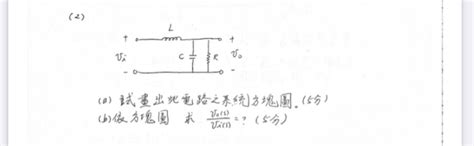 (2)
L
+ +
Vi C R Vo
- -
(a) 試畫出此電路之系統方塊圖。(5分)
(b) 依方塊圖 求 Vo(s)/Vi(s) = ? (5分)